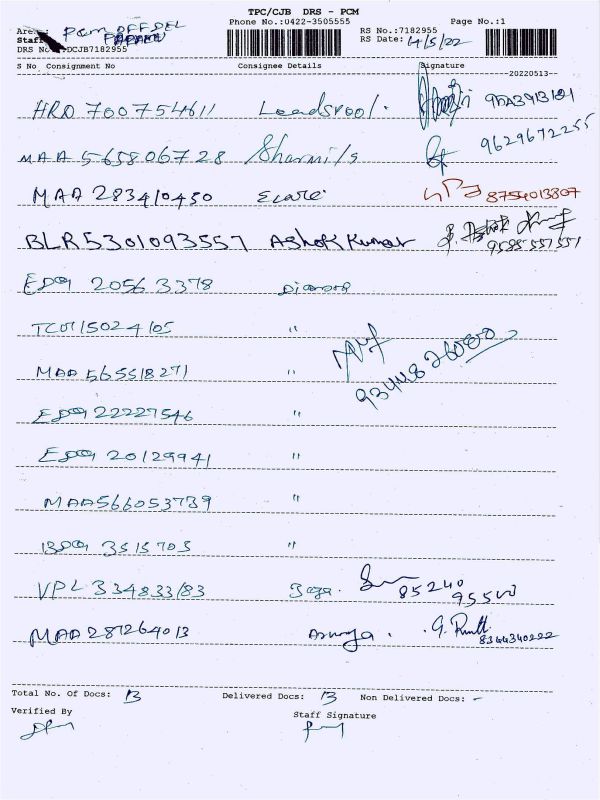 TPC/CJB DRS - PCM
Phone No.:0422-3505555 Page No.:1
Area: PCM OFF DEL
Staff
RS No.:7182955
RS Date: 14/5/22
DRS No DCJB7182955
S No Consignment No Consignee Details Signature
20220513
HRD 700754611 Leadsrool.
MAA 565806728 Sharmila 9629672255
MAA 283410450 Ecare 8754013807
BLR5301093557 Ashok Kumar S. Ashok
9585557551
EDQ 20563378 Diamond
TCO115024105 "
MAA 565518271 " 9344826080
EDQ 22227546 "
EDQ 20129941 "
MAA566053739 "
BDQ 3515703 "
VPL 334833183 Jaya. 85240
95500
MAA 281264013 8344340222
Total No. Of Docs: 13 Delivered Docs: 13 Non Delivered Docs: -
Verified By Staff Signature